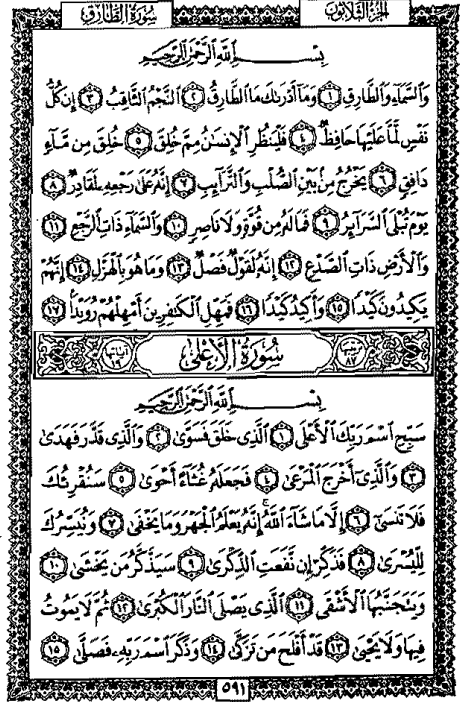 سُورَةُ الطَّارِقِ الجُزْءُ الثَّلَاثُونَ
بِسْمِ اللَّهِ الرَّحْمَٰنِ الرَّحِيمِ
وَالسَّمَاءِ وَالطَّارِقِ ١ وَمَا أَدْرَىٰكَ مَا الطَّارِقُ ٢ النَّجْمُ الثَّاقِبُ ٣ إِن كُلُّ
نَفْسٍ لَّمَّا عَلَيْهَا حَافِظٌ ٤ فَلْيَنظُرِ الْإِنسَٰنُ مِمَّ خُلِقَ ٥ خُلِقَ مِن مَّاءٍ
دَافِقٍ ٦ يَخْرُجُ مِن بَيْنِ الصُّلْبِ وَالتَّرَائِبِ ٧ إِنَّهُ عَلَىٰ رَجْعِهِ لَقَادِرٌ ٨
يَوْمَ تُبْلَى السَّرَائِرُ ٩ فَمَا لَهُ مِن قُوَّةٍ وَلَا نَاصِرٍ ١٠ وَالسَّمَاءِ ذَاتِ الرَّجْعِ ١١
وَالْأَرْضِ ذَاتِ الصَّدْعِ ١٢ إِنَّهُ لَقَوْلٌ فَصْلٌ ١٣ وَمَا هُوَ بِالْهَزْلِ ١٤ إِنَّهُمْ
يَكِيدُونَ كَيْدًا ١٥ وَأَكِيدُ كَيْدًا ١٦ فَمَهِّلِ الْكَٰفِرِينَ أَمْهِلْهُمْ رُوَيْدًا ١٧
سُورَةُ الْأَعْلَىٰ
بِسْمِ اللَّهِ الرَّحْمَٰنِ الرَّحِيمِ
سَبِّحِ اسْمَ رَبِّكَ الْأَعْلَى ١ الَّذِي خَلَقَ فَسَوَّىٰ ٢ وَالَّذِي قَدَّرَ فَهَدَىٰ
٣ وَالَّذِي أَخْرَجَ الْمَرْعَىٰ ٤ فَجَعَلَهُ غُثَاءً أَحْوَىٰ ٥ سَنُقْرِئُكَ
فَلَا تَنسَىٰ ٦ إِلَّا مَا شَاءَ اللَّهُ إِنَّهُ يَعْلَمُ الْجَهْرَ وَمَا يَخْفَىٰ ٧ وَنُيَسِّرُكَ
لِلْيُسْرَىٰ ٨ فَذَكِّرْ إِن نَّفَعَتِ الذِّكْرَىٰ ٩ سَيَذَّكَّرُ مَن يَخْشَىٰ ١٠
وَيَتَجَنَّبُهَا الْأَشْقَى ١١ الَّذِي يَصْلَى النَّارَ الْكُبْرَىٰ ١٢ ثُمَّ لَا يَمُوتُ
فِيهَا وَلَا يَحْيَىٰ ١٣ قَدْ أَفْلَحَ مَن تَزَكَّىٰ ١٤ وَذَكَرَ اسْمَ رَبِّهِ فَصَلَّىٰ ١٥
٥٩١